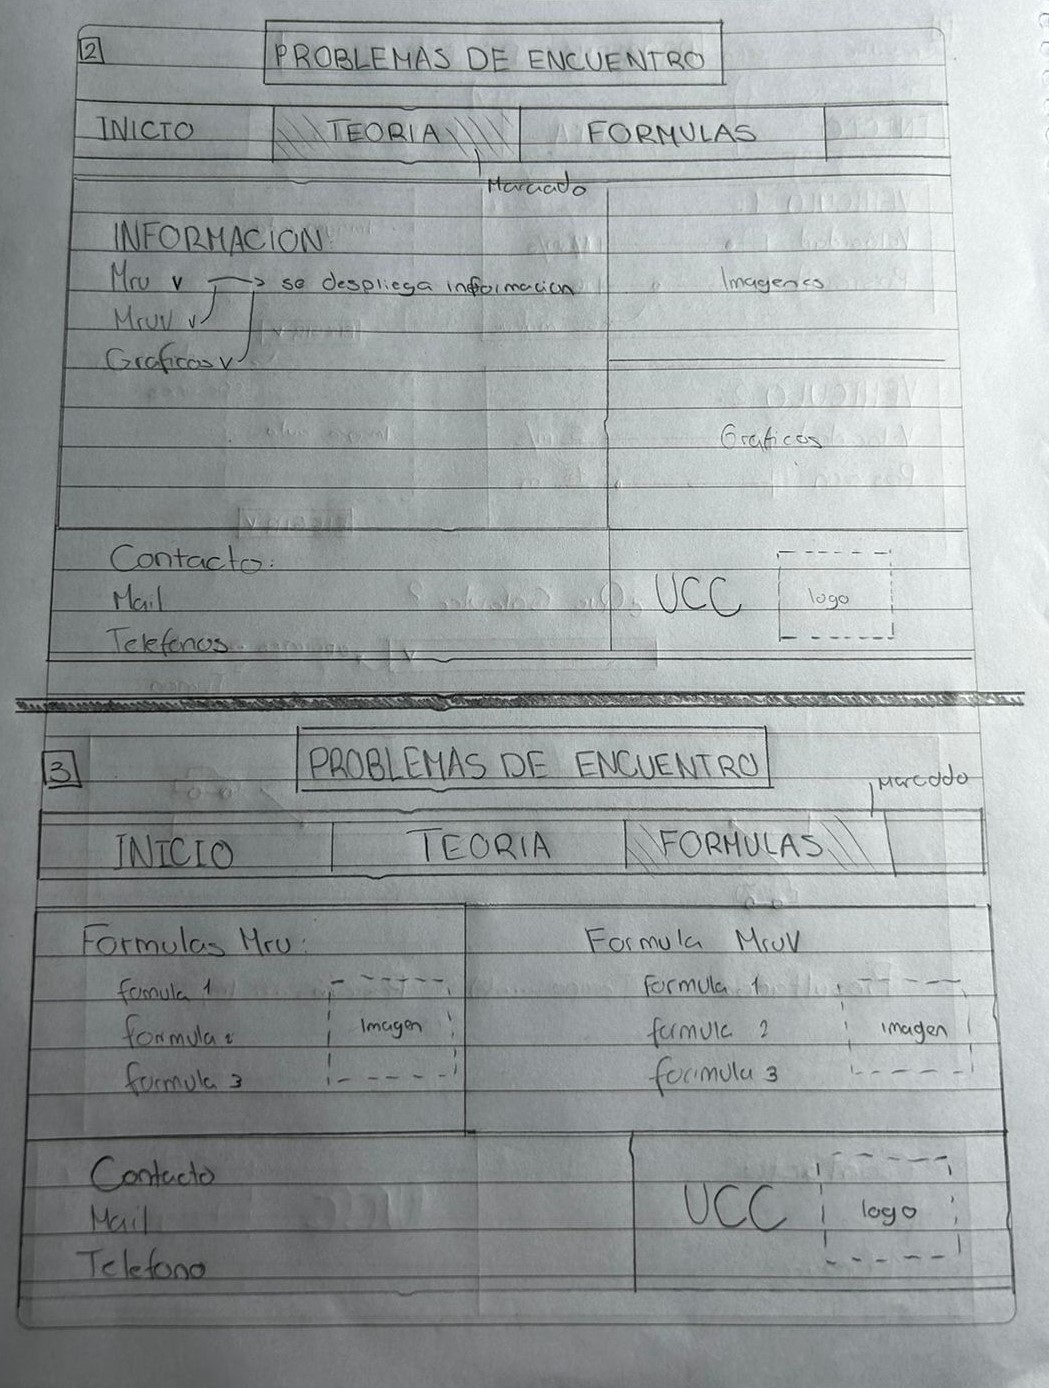 2
PROBLEMAS DE ENCUENTRO
INICIO TEORIA FORMULAS
Marcado
INFORMACION
Mru v → se despliega informacion
Mruv v
Graficos v
Imagenes
Graficos
Contacto:
Mail
Telefonos
UCC logo
3
PROBLEMAS DE ENCUENTRO
Marcado
INICIO TEORIA FORMULAS
Formulas Mru:
fomula 1
formula 2
formula 3
Imagen
Formula MruV
Formula 1
formula 2
formula 3
imagen
Contacto
Mail
Telefono
UCC logo